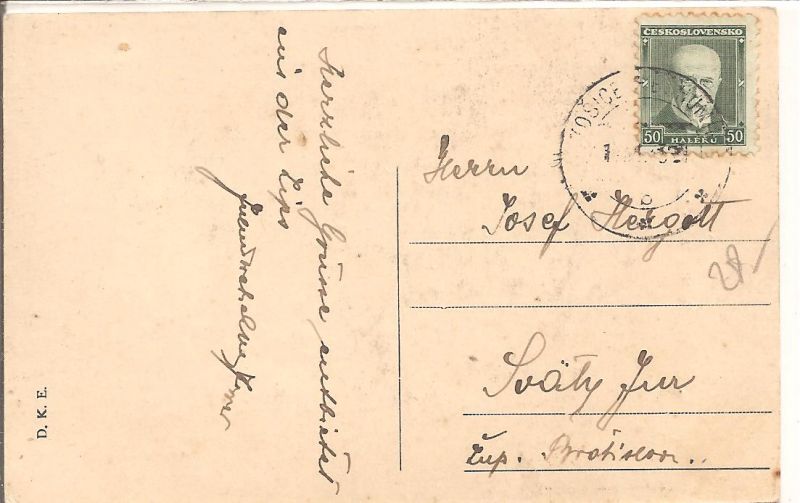 Herzliche Grüsse entbietet
aus der Zips
D. K. E.
ČESKOSLOVENSKO
50 HALÉŘŮ 50
KOŠICE
Herrn
Josef Hergott
Svätý Jur
Žup. Bratislava.